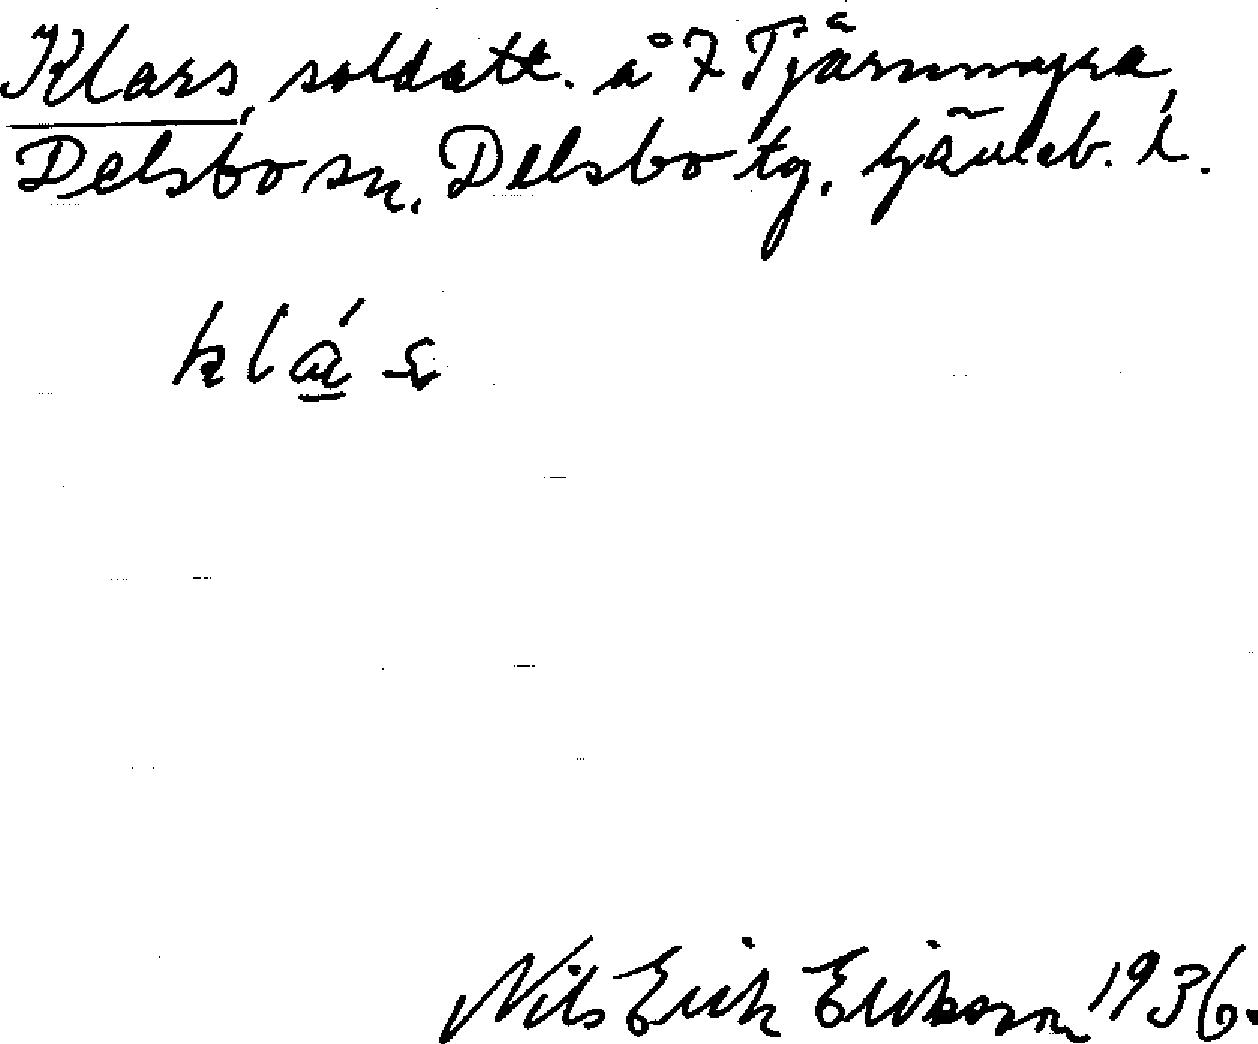 Klars, soldatt. å 7 Tjärnmyra,
Delsbo sn. Delsbo tg. Gävleb. l.
klá
Nils Erik Erikson 1936.